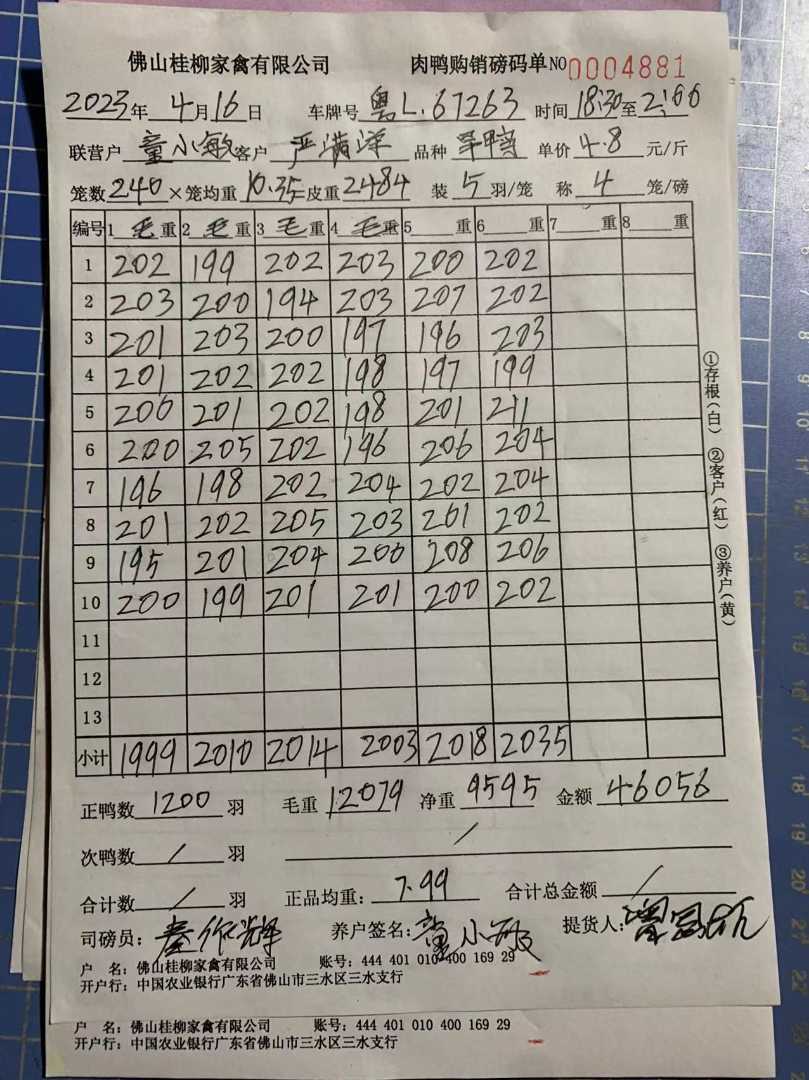 佛山桂柳家禽有限公司 肉鸭购销磅码单 NO 0004881
2023年 4月16日 车牌号 粤L.67263 时间 18:30至2:00
联营户 童小敏 客户 严满洋 品种 旱鸭 单价 4.8 元/斤
笼数 240 ×笼均重 10.35 =皮重 2484 装 5 羽/笼 称 4 笼/磅
编号 1 毛 重 2 毛 重 3 毛 重 4 毛 重 5 重 6 重 7 重 8 重
1 202 199 202 203 200 202
2 203 200 194 203 207 202
3 201 203 200 197 196 203
4 201 202 202 198 197 199
5 200 201 202 198 201 211
6 200 205 202 196 206 204
7 196 198 202 204 202 204
8 201 202 205 203 201 202
9 195 201 204 200 208 206
10 200 199 201 201 200 202
11
12
13
小计 1999 2010 2014 2003 2018 2035
正鸭数 1200 羽 毛重 12079 净重 9595 金额 46056
次鸭数 / 羽 /
合计数 / 羽 正品均重: 7.99 合计总金额 /
司磅员: 秦作辉 养户签名: 童小敏 提货人:
户 名: 佛山桂柳家禽有限公司 账号: 444 401 010 400 169 29
开户行: 中国农业银行广东省佛山市三水区三水支行
①存根(白) ②客户(红) ③养户(黄)
户 名: 佛山桂柳家禽有限公司 账号: 444 401 010 400 169 29
开户行: 中国农业银行广东省佛山市三水区三水支行